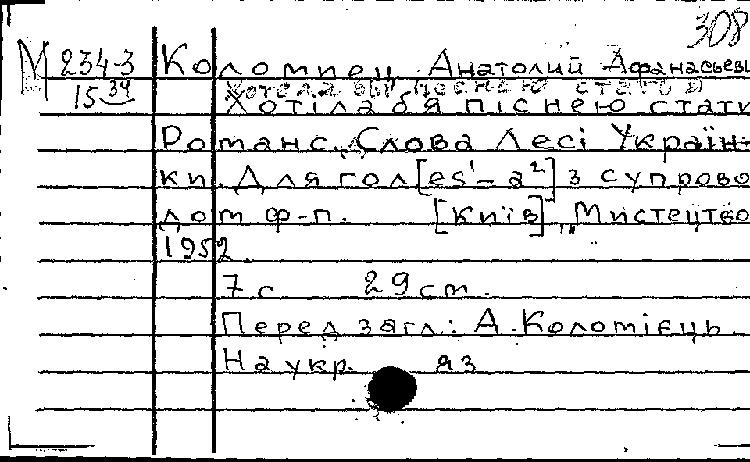 308
М 234-3 Коломиец Анатолий Афанасьеви
15 39 Хотела бы песнею стать я
Хотіла б я піснею стати
Романс. Слова Лесі Україн-
ки. Для гол [es¹-a²] з супрово
дом ф-п. [Київ] "Мистецтво
1952.
7 с 29 см.
Перед загл: А. Коломієць
На укр. яз